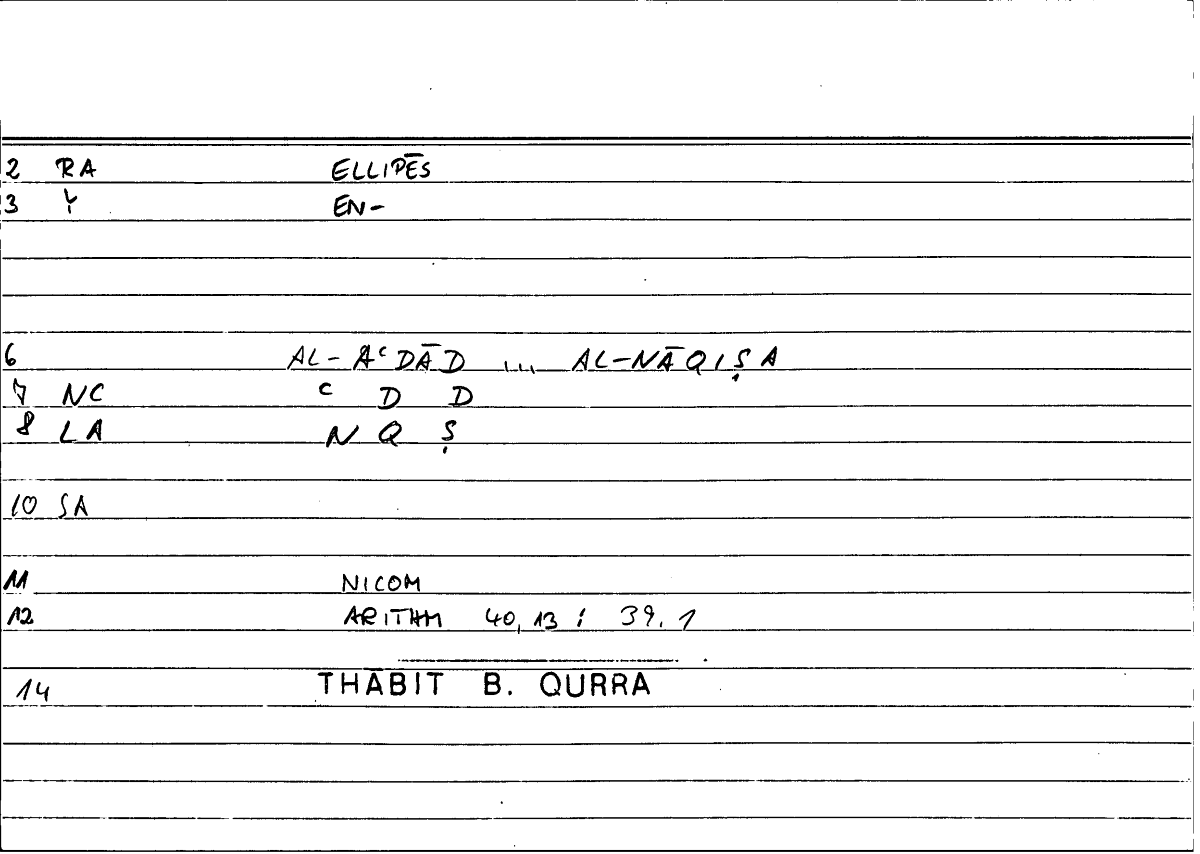 2 RA ELLIPĒS
3 Y EN-
6 AL-AᶜDĀD ... AL-NĀQIṢA
7 NC ᶜ D D
8 LA N Q Ṣ
10 SA
11 NICOM
12 ARITHM 40,13 : 39.1
14 THĀBIT B. QURRA